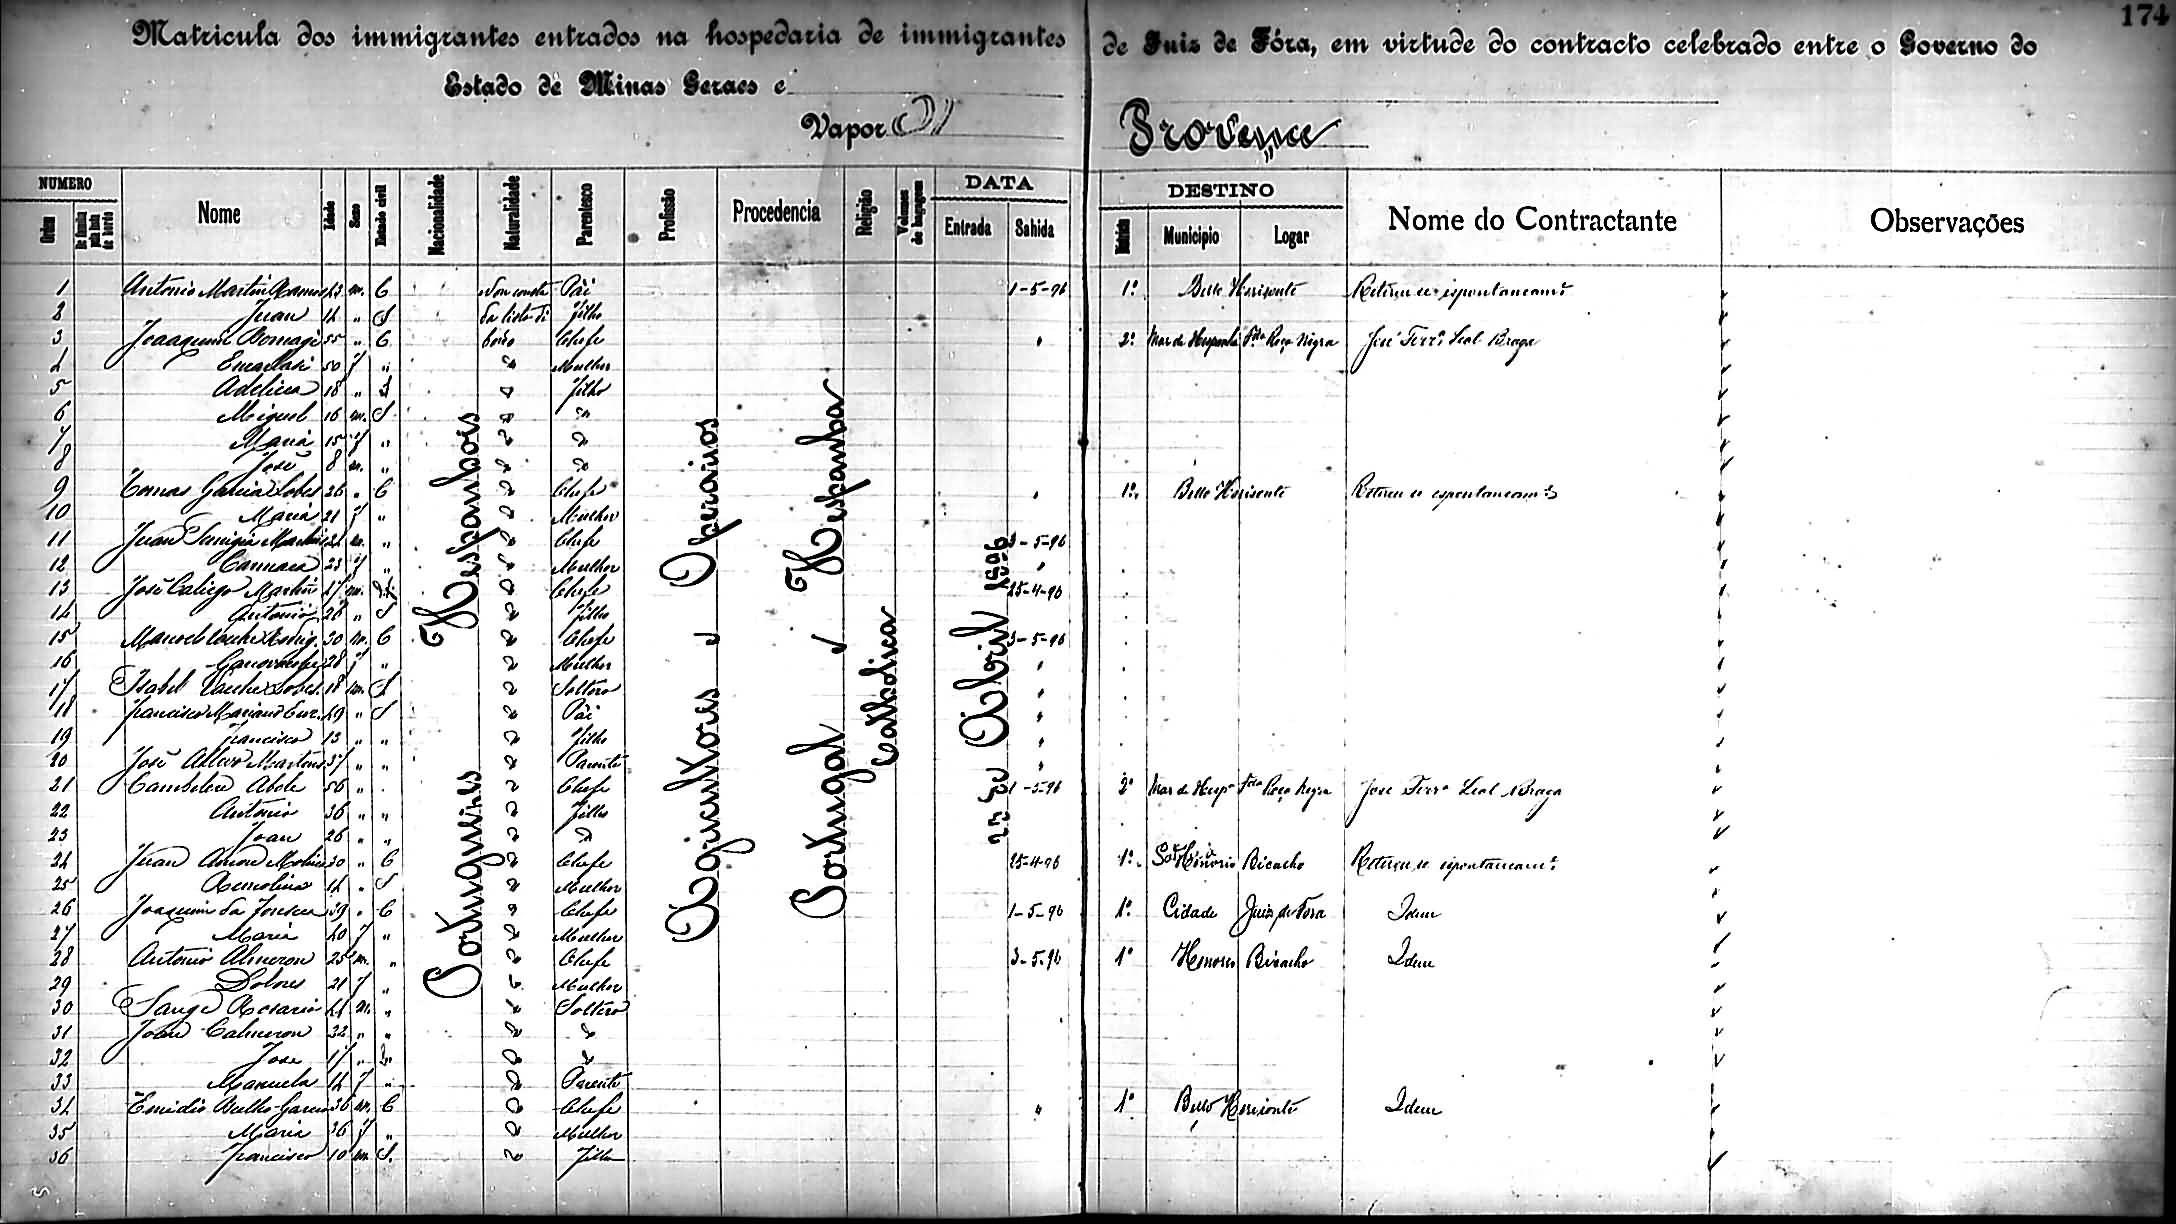 174
Matricula dos immigrantes entrados na hospedaria de immigrantes de Juiz de Fóra, em virtude do contracto celebrado entre o Governo do
Estado de Minas Geraes e
Vapor Provence
NUMERO Nome Idade Sexo Estado civil Nacionalidade Naturalidade Parentesco Profissão Procedencia Religião Volumes de bagagem DATA DESTINO Nome do Contractante Observações
Ordem De familia pela lista de bordo Entrada Sahida Districto Municipio Logar
Hespanhóis
Portuguezes
Operarios
Agricultores
Hespanha
Portugal
Catholica
de Abril 1896
1 Antonio Martin Ramos m. C Non consta Pai 1-5-96 1º Bello Horisonte Retirou-se espontaneamte
2 Juan 14 " S da lista di Filho
3 Joaaquim 55 " C bordo Chefe " 2º Mar de Hespanha Fda Roça Negra José Ferrª Leal Braga
4 50 f " " Mulher
5 Adelina 18 " " Filho
6 Miguel 16 m. S " "
7 Maria 15 f " " "
8 José 8 m. " " "
9 Tomas Garcia Lobes 26 " C " Chefe " 1º Bello Horisonte Retirou se espontaneamte
10 Maria 21 f " " Mulher
11 Juan m. " " Chefe 3-5-96
12 23 f " " Mulher "
13 José Caliego Martin m. " Chefe 25-4-96
14 Antonio 26 " S " Filho
15 Manoel 30 m. C " Chefe 3-5-96
16 28 f " " Mulher "
17 Isabel 18 m. S " Soltero "
18 Francisco Mariano 49 " S " Pai "
19 Francisco 13 " " " Filho "
20 José Martins 37 " " " Parente "
21 Abele 56 " " Chefe 1-5-96 2º Mar de Hespª Fda Roça Negra José Ferrª Leal Braga
22 Antonio 36 " " " Filho
23 Joan 26 " " " "
24 Juan 30 " C " Chefe 25-4-96 1º Bicacho Retirou se espontaneamte
25 14 " S " Mulher
26 Joaquim da Fonseca 39 " C " Chefe 1-5-96 1º Cidade Juiz de Fora Idem
27 Maria 40 f " " Mulher
28 Antonio Almeron 25 m. " " Chefe 3-5-96 1º Bicacho Idem
29 Dolores 21 f " " Mulher
30 Rosario m. " " Soltero
31 Joan Calmeron 22 " " " "
32 Jose 17 " " " "
33 Manuela 14 f " " Parente
34 Emidio 36 m. C " Chefe " 1º Bello Horisonte Idem
35 Maria 36 f " " Mulher
36 Francisco 10 m. S. " Filho